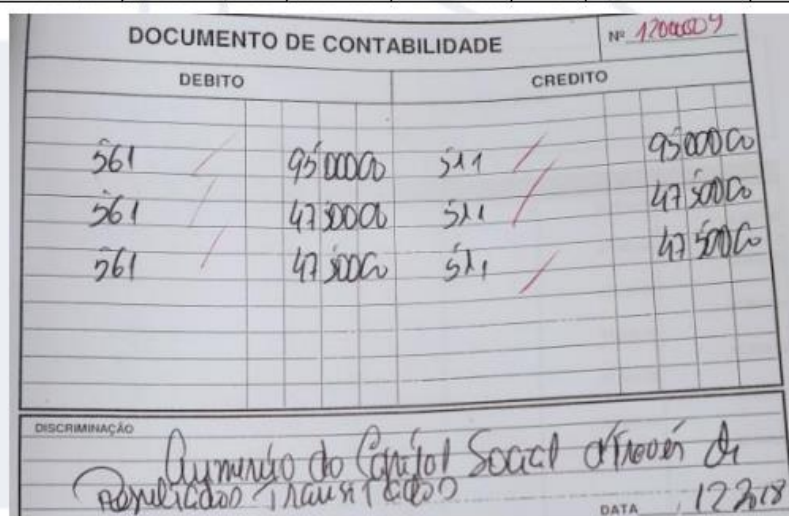 DOCUMENTO DE CONTABILIDADE Nº 12000009
DEBITO CREDITO
561 95 000 00 511 95 000 00
561 47 500 00 511 47 500 00
561 47 500 00 511 47 500 00
DISCRIMINAÇÃO
Aumento do Capital Social através de
Resultados Transitados
DATA 12 2018